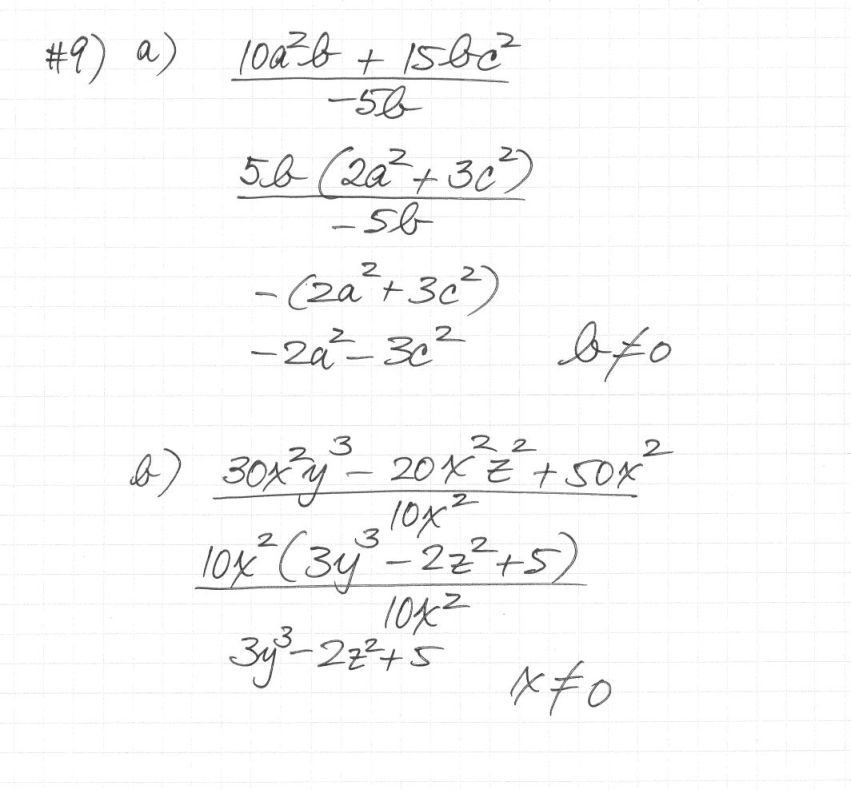 #9) a) 10a²b + 15bc²
-5b
5b (2a² + 3c²)
-5b
-(2a² + 3c²)
-2a² - 3c² b≠0
b) 30x²y³ - 20x²z² + 50x²
10x²
10x² (3y³ - 2z² + 5)
10x²
3y³ - 2z² + 5
x≠0